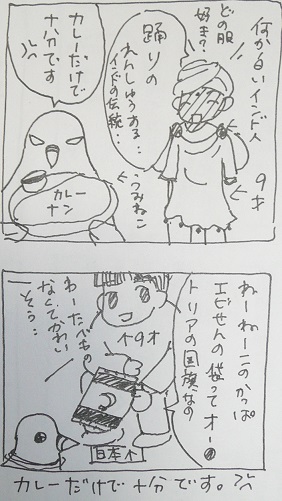 何か白いインド人
どの服
好き?
踊りの
れんしゅうある…
インドの伝統…
カレーだけで
十分です
9才
うみねこ
カレー
ナン
ねーねーこのかっぱ
エビせんの袋ってオース
トリアの国旗なの
わーたべもの
なくてかわい
そう…
↑9才
日本人
カレーだけで十分です。